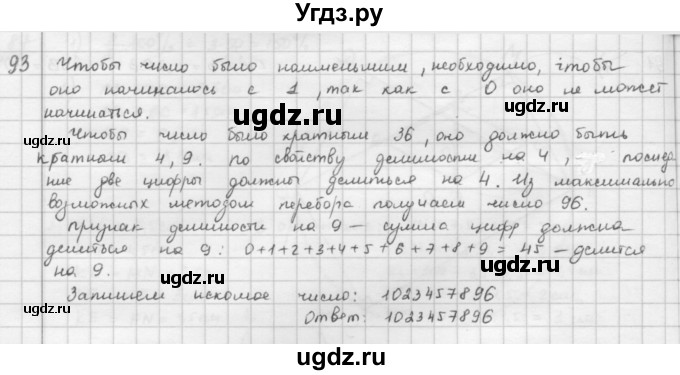 Угдз.ру
93 Чтобы число было наименьшим, необходимо, чтобы
оно начиналось с 1, так как с 0 оно не может
начинаться.
ugdz.ru
ugdz.ru
Чтобы число было кратным 36, оно должно быть
ugdz.ru
кратным 4, 9. по свойству делимости на 4, послед
ние две цифры должны делиться на 4. Из максимально
возможных методом перебора получаем число 96.
ugdz.ru
ugdz.ru
признак делимости на 9 – сумма цифр должна
делиться на 9: 0+1+2+3+4+5+6+7+8+9 = 45 – делится
на 9.
ugdz.ru
Запишем искомое число: 1023457896
ugdz.ru
ugdz.ru
Ответ: 1023457896
ugdz.ru